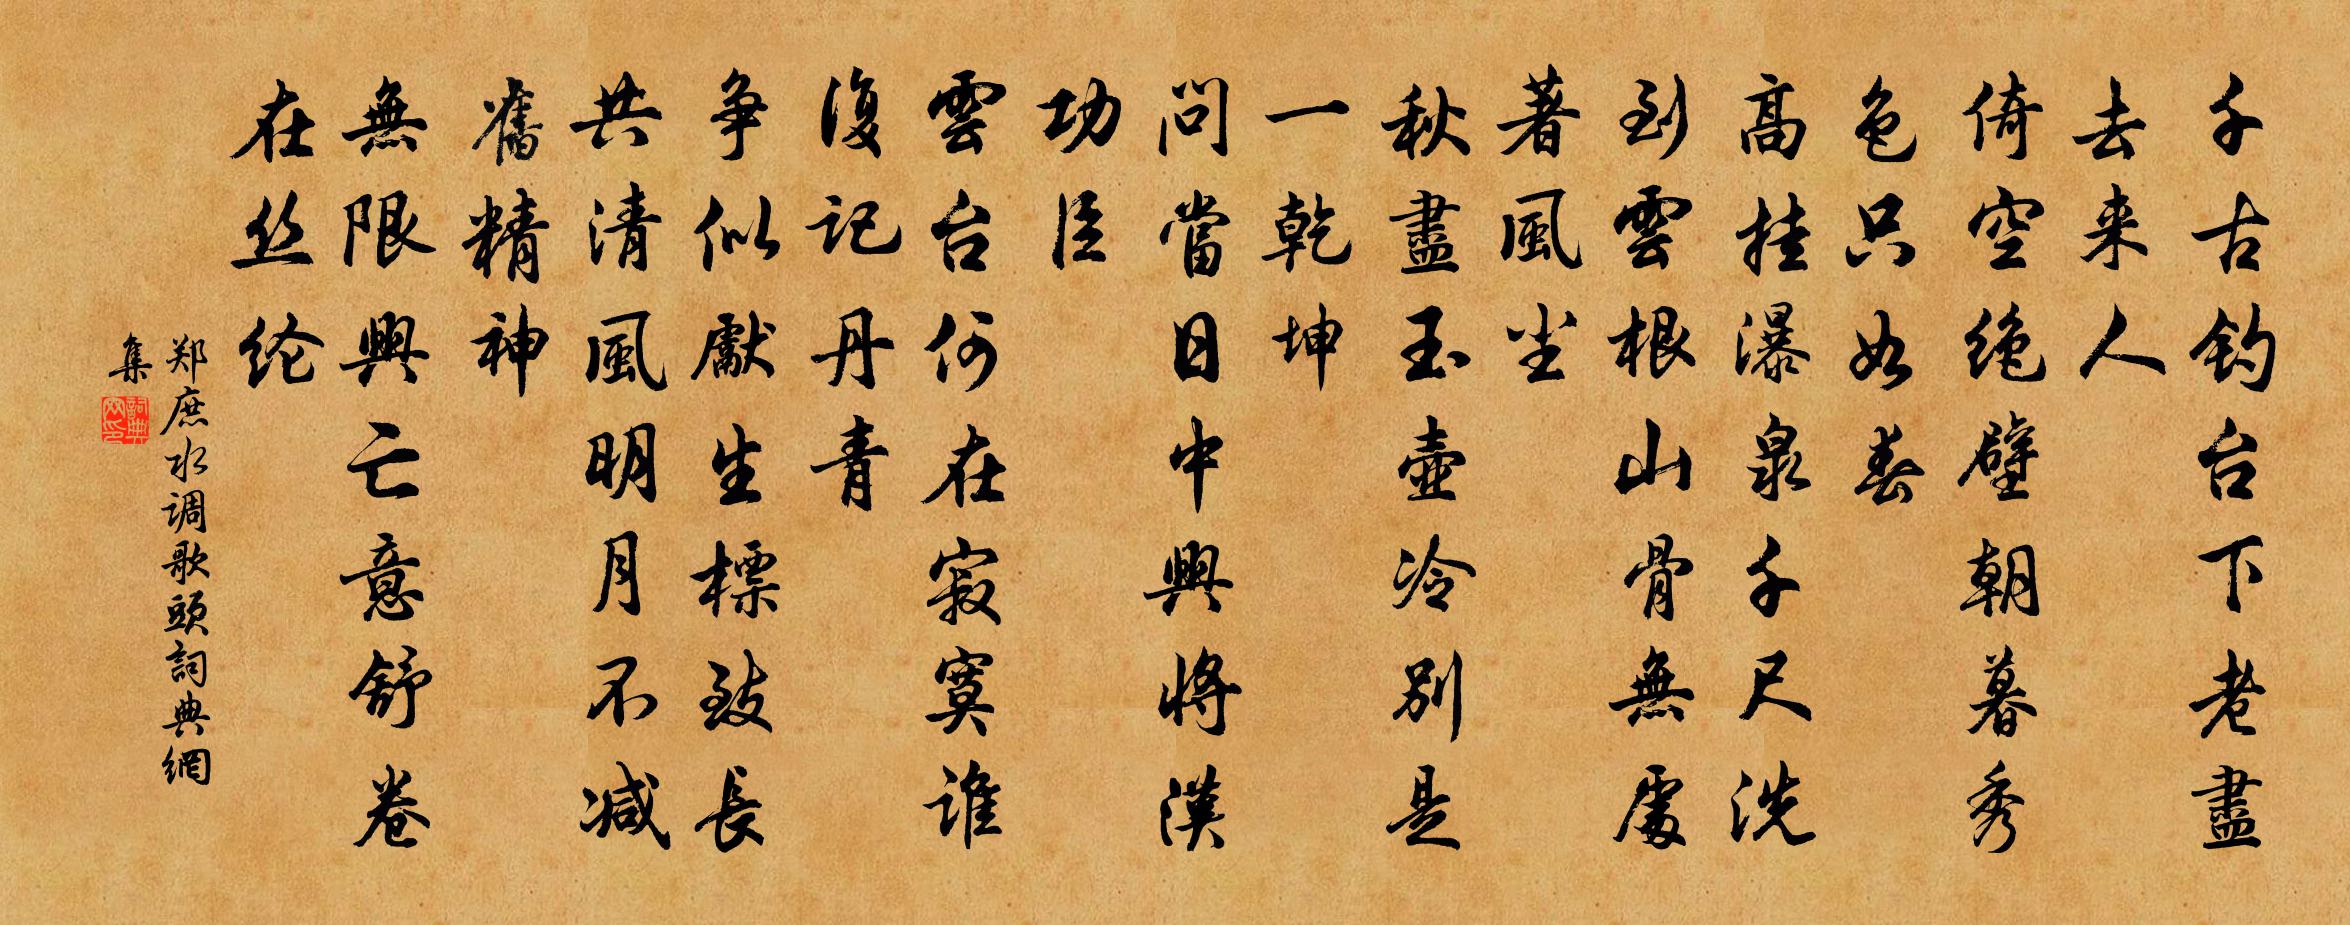 千古钓台下老盡
去来人
倚空绝壁朝暮秀
色只如春
高挂瀑泉千尺洗
到雲根山骨無處
著風尘
秋盡玉壺冷别是
一乾坤
問當日中興將漢
功臣
雲台何在寂寞谁
復記丹青
争似獻生標致長
共清風明月不减
舊精神
無限興亡意舒卷
在丝纶
郑庶水调歌頭詞典網
集
詞典
网印